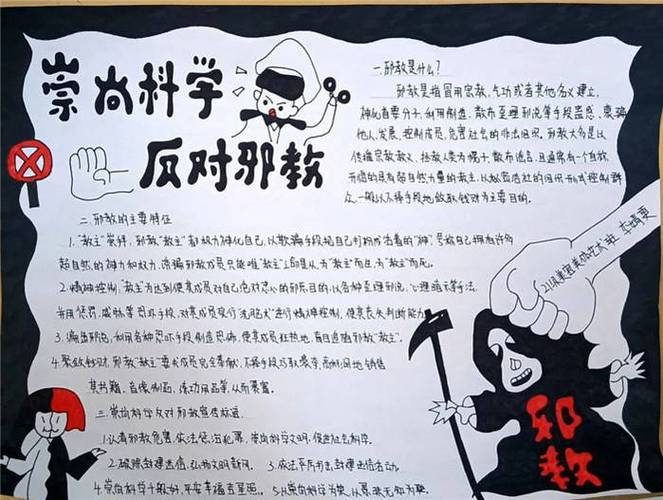 崇尚科学
反对邪教
一.邪教是什么?
邪教是指冒用宗教、气功或者其他名义建立,
神化首要分子,利用制造、散布歪理邪说等手段蛊惑、蒙骗
他人,发展、控制成员,危害社会的非法组织。邪教大多是以
传播宗教教义、拯救人类为幌子,散布谣言,且通常有一个自称
开悟的具有超自然力量的教主,以秘密结社的组织形式控制群
众,一般以不择手段地敛取钱财为主要目的。
二.邪教的主要特征
1."教主"崇拜,邪教"教主"都极力神化自己,以欺骗手段把自己打扮成活着的"神",号称自己拥有许多
超自然的神力和权力,诱骗邪教成员只能唯"教主"之命是从,为"教主"而生,为"教主"而死。
2.精神控制,"教主"为达到使其成员对自己绝对忠心的邪乐目的,以各种歪理邪说、心理暗示等手法
惩罚、威胁等恐吓手段,对其成员实行"洗脑式"进行精神控制,使其丧失判断能力
3.编造邪说,利用各种恐吓手段制造恐怖,使其成员狂热地、盲目追随邪教"教主"。
4.聚敛钱财,邪教"教主"要求成员完全奉献,不择手段巧取豪夺,高价销售
其书籍、音像制品、练功用品等,从而暴富。
三.崇尚科学反对邪教宣传标语
1.认清邪教危害,依法惩治犯罪,崇尚科学文明,促进社会和谐。
2.破除封建迷信,弘扬文明新风。 3.依法严厉打击封建迷信活动。
4.崇尚科学千般好,平安幸福吉星照。 5.以崇尚科学为荣,以愚昧无知为耻。
邪
教